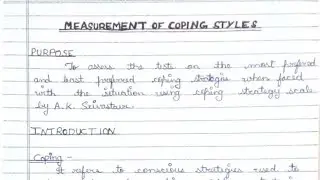 MEASUREMENT OF COPING STYLES
PURPOSE
To assess the tests on the most prefered
and least prefered coping stratigies when faced
with the situation using coping strategy scale
by A.K. Srivastava
INTRODUCTION
Coping :-
It refers to conscious strategies used to